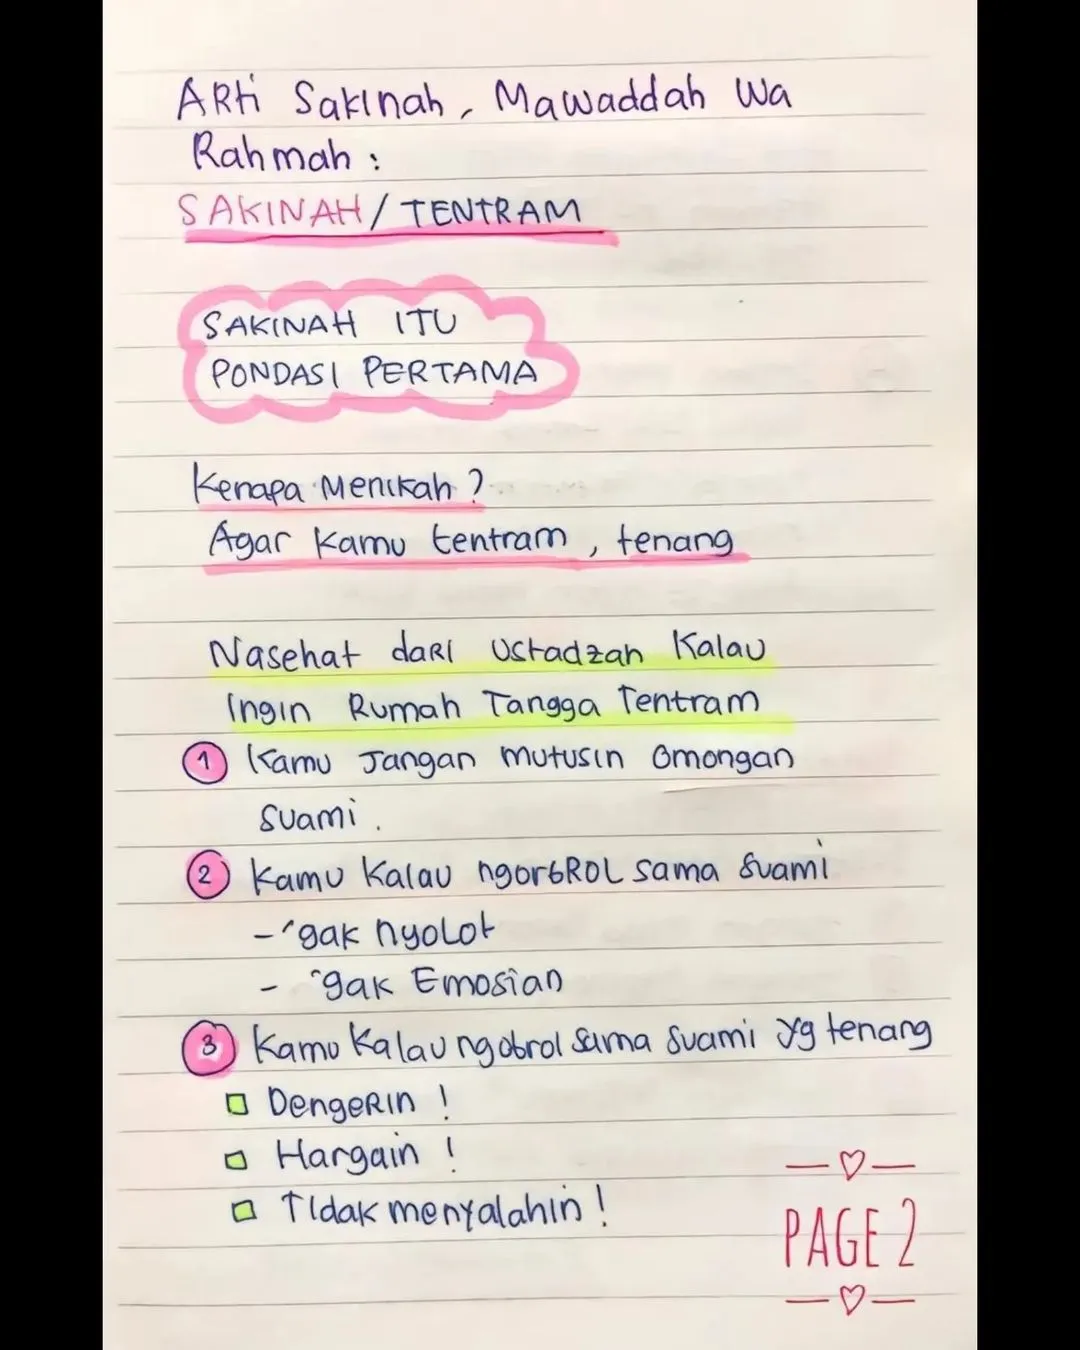 Arti Sakinah, Mawaddah Wa
Rahmah :
SAKINAH / TENTRAM
SAKINAH ITU
PONDASI PERTAMA
Kenapa Menikah ?
Agar kamu tentram , tenang
Nasehat dari Ustadzah Kalau
Ingin Rumah Tangga Tentram
1 Kamu Jangan mutusin omongan
suami .
2 Kamu Kalau ngorbrol sama suami
- gak nyolot
- gak Emosian
3 Kamu Kalau ngobrol sama suami yg tenang
Dengerin !
Hargain !
Tidak menyalahin !
PAGE 2